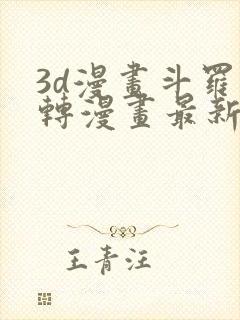 3d漫畫斗羅
轉漫畫最新
王青汪